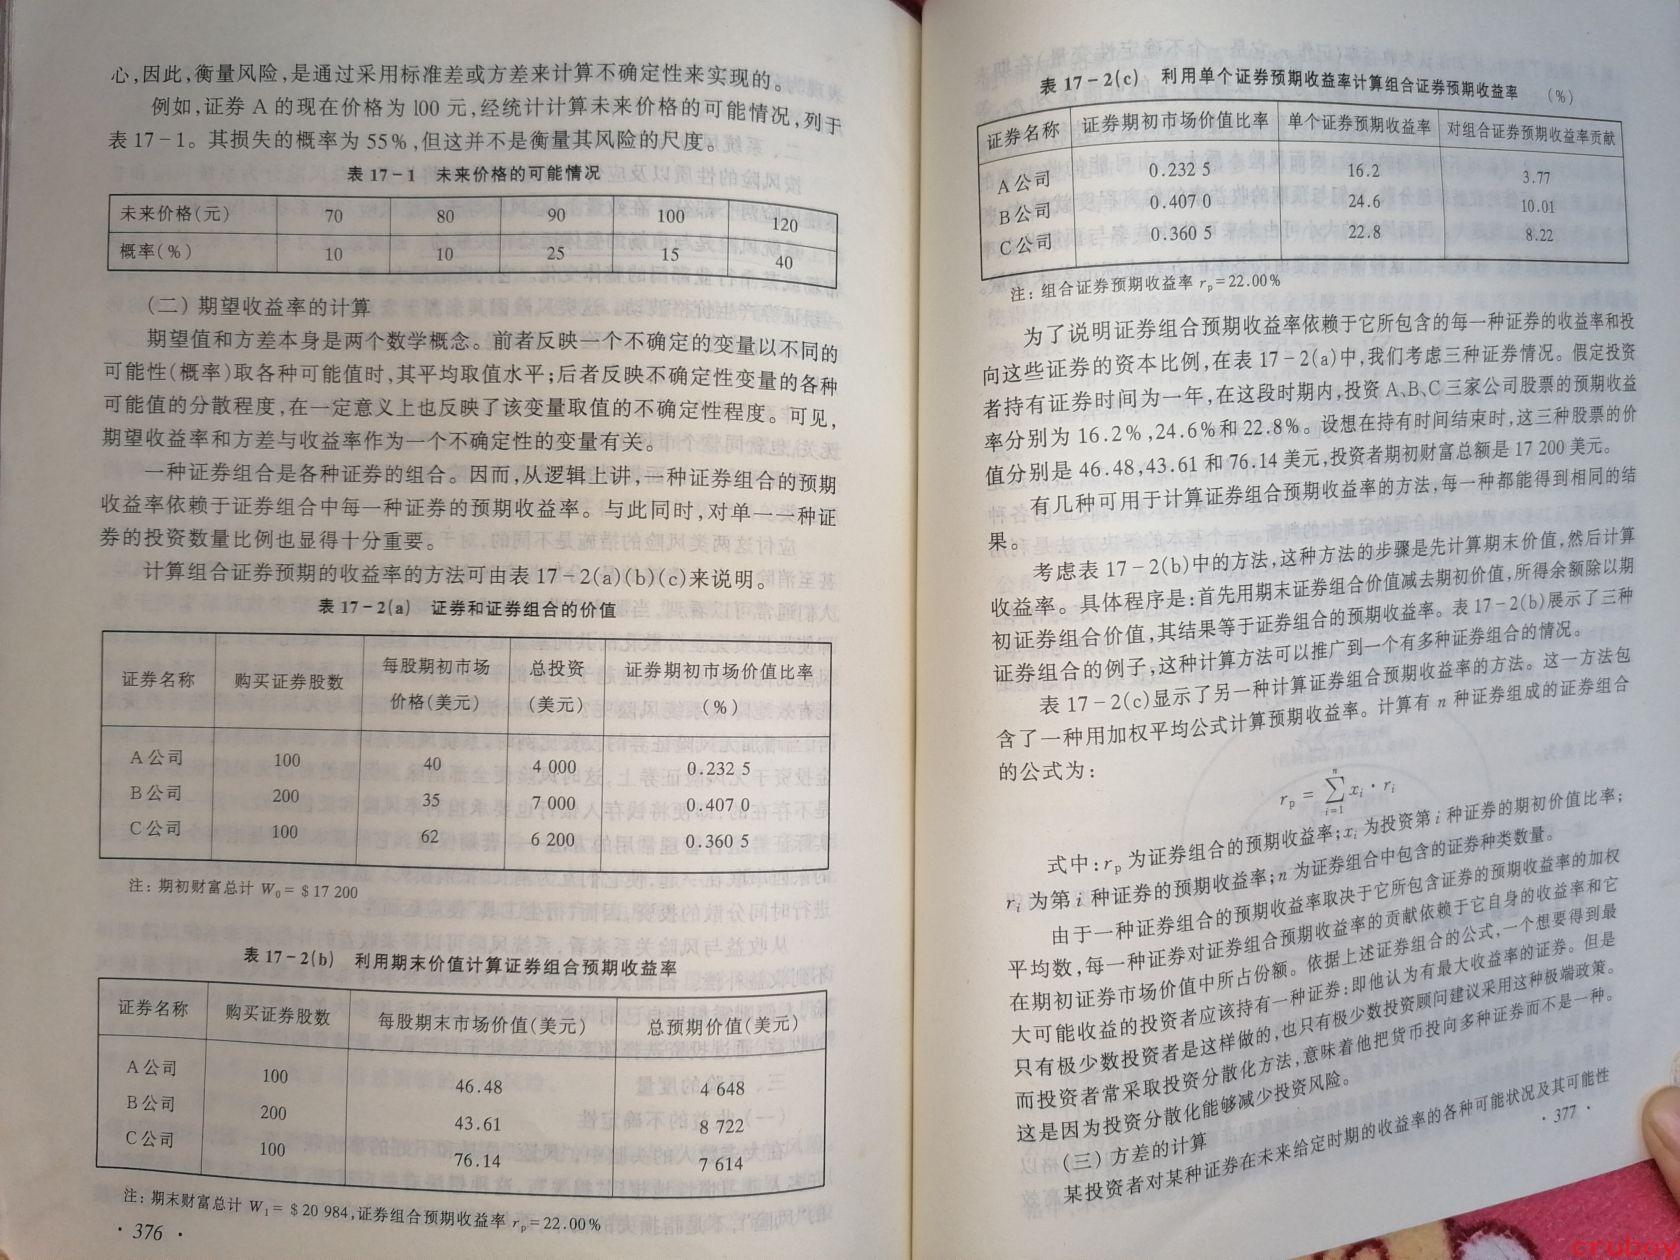 心,因此,衡量风险,是通过采用标准差或方差来计算不确定性来实现的。
例如,证券 A 的现在价格为 100 元,经统计计算未来价格的可能情况,列于
表 17-1。其损失的概率为 55%,但这并不是衡量其风险的尺度。
表 17-1 未来价格的可能情况
未来价格(元) 70 80 90 100 120
概率(%) 10 10 25 15 40
(二) 期望收益率的计算
期望值和方差本身是两个数学概念。前者反映一个不确定的变量以不同的
可能性(概率)取各种可能值时,其平均取值水平;后者反映不确定性变量的各种
可能值的分散程度,在一定意义上也反映了该变量取值的不确定性程度。可见,
期望收益率和方差与收益率作为一个不确定性的变量有关。
一种证券组合是各种证券的组合。因而,从逻辑上讲,一种证券组合的预期
收益率依赖于证券组合中每一种证券的预期收益率。与此同时,对单一一种证
券的投资数量比例也显得十分重要。
计算组合证券预期的收益率的方法可由表 17-2(a)(b)(c)来说明。
表 17-2(a) 证券和证券组合的价值
证券名称 购买证券股数 每股期初市场价格(美元) 总投资(美元) 证券期初市场价值比率(%)
A 公司 100 40 4 000 0.232 5
B 公司 200 35 7 000 0.407 0
C 公司 100 62 6 200 0.360 5
注: 期初财富总计 W₀ = $ 17 200
表 17-2(b) 利用期末价值计算证券组合预期收益率
证券名称 购买证券股数 每股期末市场价值(美元) 总预期价值(美元)
A 公司 100 46.48 4 648
B 公司 200 43.61 8 722
C 公司 100 76.14 7 614
注: 期末财富总计 W₁ = $ 20 984,证券组合预期收益率 rₚ = 22.00%
· 376 ·
表 17-2(c) 利用单个证券预期收益率计算组合证券预期收益率 (%)
证券名称 证券期初市场价值比率 单个证券预期收益率 对组合证券预期收益率贡献
A 公司 0.232 5 16.2 3.77
B 公司 0.407 0 24.6 10.01
C 公司 0.360 5 22.8 8.22
注: 组合证券预期收益率 rₚ = 22.00%
为了说明证券组合预期收益率依赖于它所包含的每一种证券的收益率和投
向这些证券的资本比例,在表 17-2(a)中,我们考虑三种证券情况。假定投资
者持有证券时间为一年,在这段时期内,投资 A、B、C 三家公司股票的预期收益
率分别为 16.2%,24.6%和 22.8%。设想在持有时间结束时,这三种股票的价
值分别是 46.48,43.61 和 76.14 美元,投资者期初财富总额是 17 200 美元。
有几种可用于计算证券组合预期收益率的方法,每一种都能得到相同的结
果。
考虑表 17-2(b)中的方法,这种方法的步骤是先计算期末价值,然后计算
收益率。具体程序是:首先用期末证券组合价值减去期初价值,所得余额除以期
初证券组合价值,其结果等于证券组合的预期收益率。表 17-2(b)展示了三种
证券组合的例子,这种计算方法可以推广到一个有多种证券组合的情况。
表 17-2(c)显示了另一种计算证券组合预期收益率的方法。这一方法包
含了一种用加权平均公式计算预期收益率。计算有 n 种证券组成的证券组合
的公式为:
rₚ = ∑ⁿᵢ₌₁ xᵢ · rᵢ
式中: rₚ 为证券组合的预期收益率; xᵢ 为投资第 i 种证券的期初价值比率;
rᵢ 为第 i 种证券的预期收益率; n 为证券组合中包含的证券种类数量。
由于一种证券组合的预期收益率取决于它所包含证券的预期收益率的加权
平均数,每一种证券对证券组合预期收益率的贡献依赖于它自身的收益率和它
在期初证券市场价值中所占份额。依据上述证券组合的公式,一个想要得到最
大可能收益的投资者应该持有一种证券:即他认为有最大收益率的证券。但是
只有极少数投资者是这样做的,也只有极少数投资顾问建议采用这种极端政策。
而投资者常采取投资分散化方法,意味着他把货币投向多种证券而不是一种。
这是因为投资分散化能够减少投资风险。
(三) 方差的计算
某投资者对某种证券在未来给定时期的收益率的各种可能状况及其可能性
· 377 ·